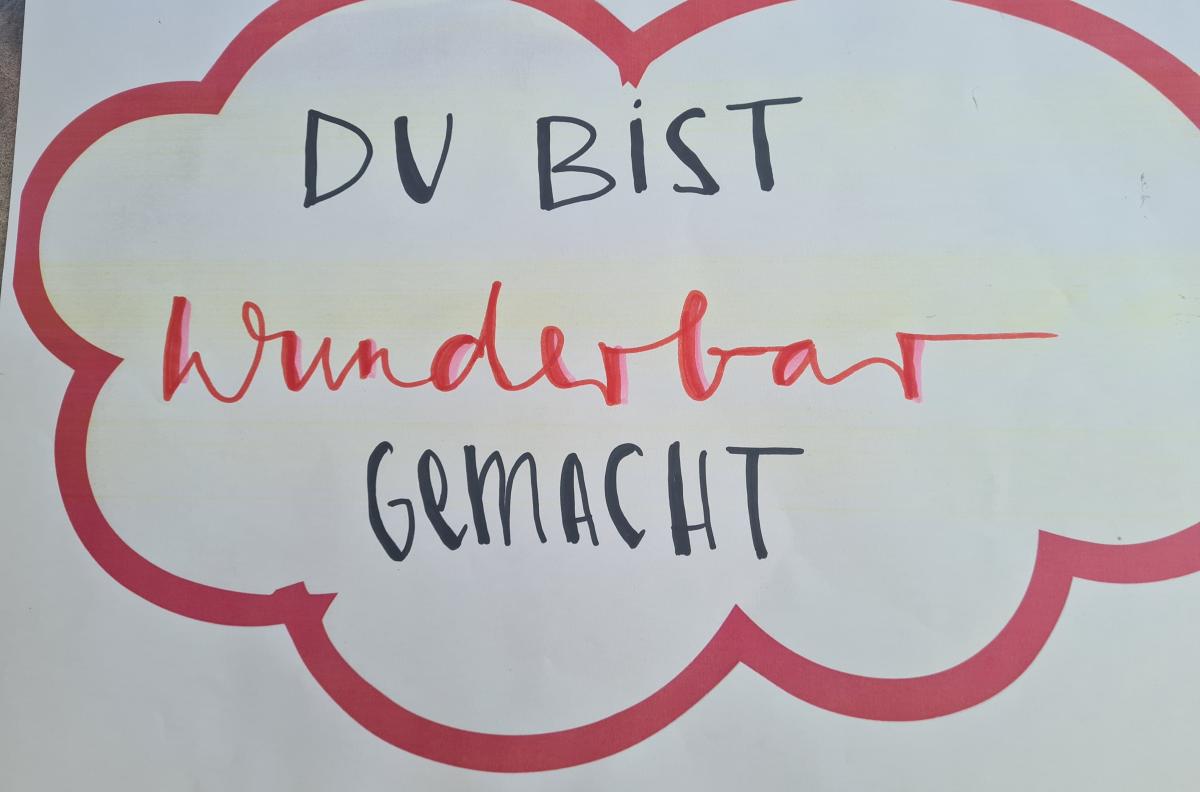 DU BiST
Wunderbar
GeMACHT